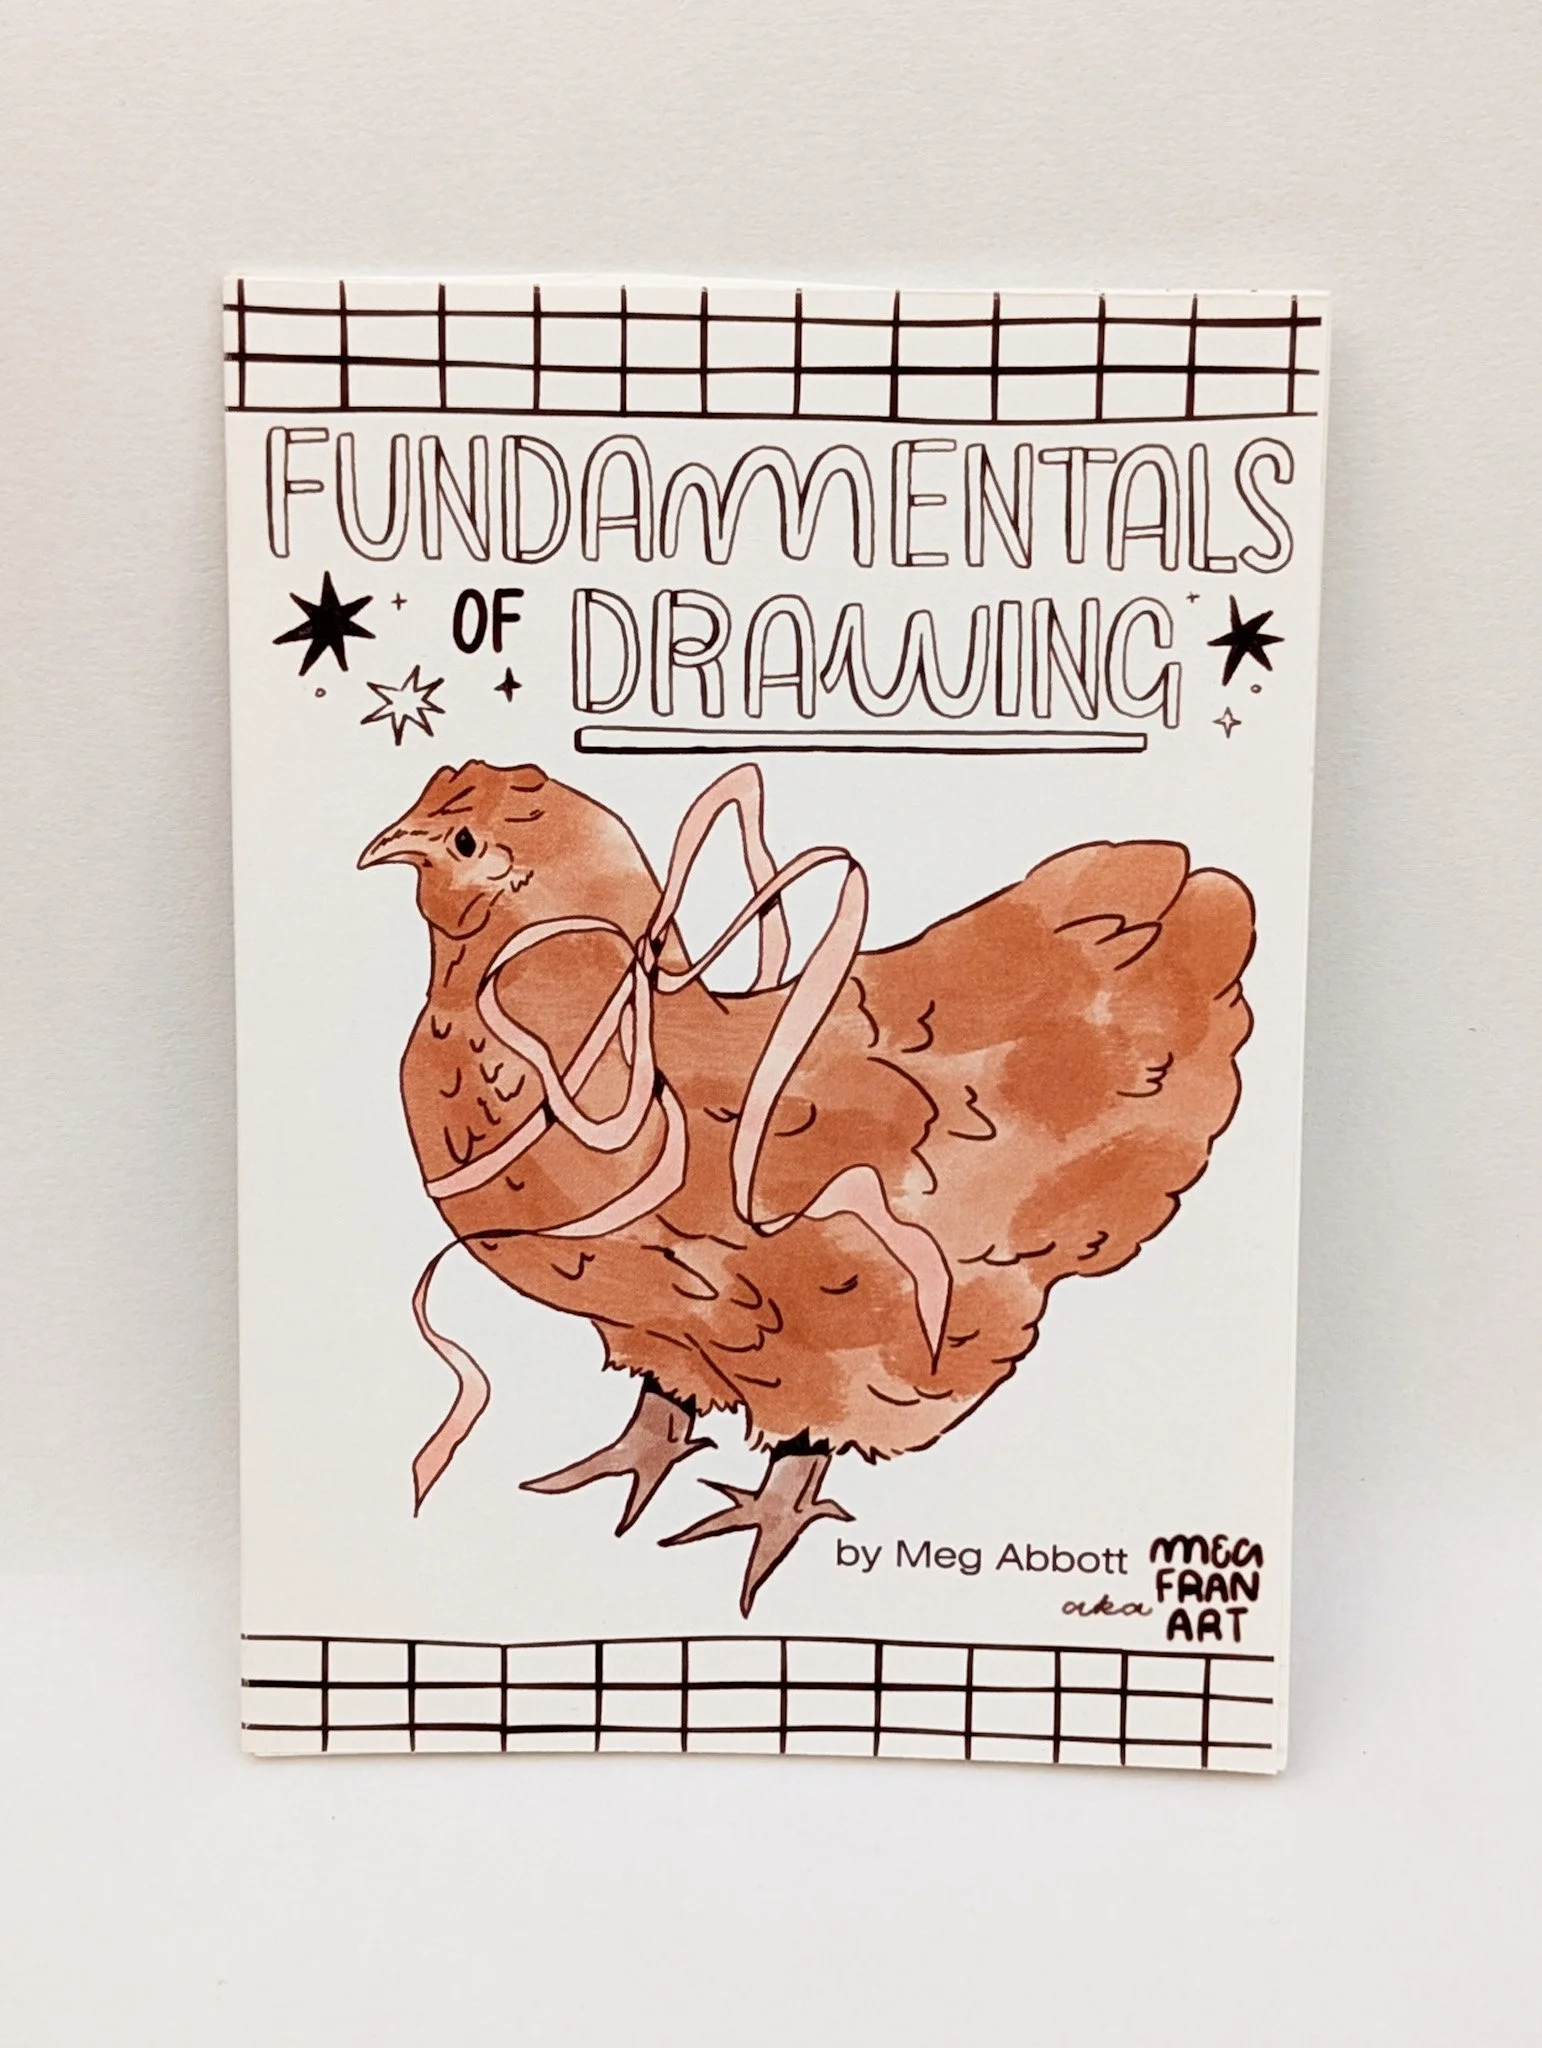 FUNDAMENTALS
OF DRAWING
by Meg Abbott
aka
MEG
FRAN
ART